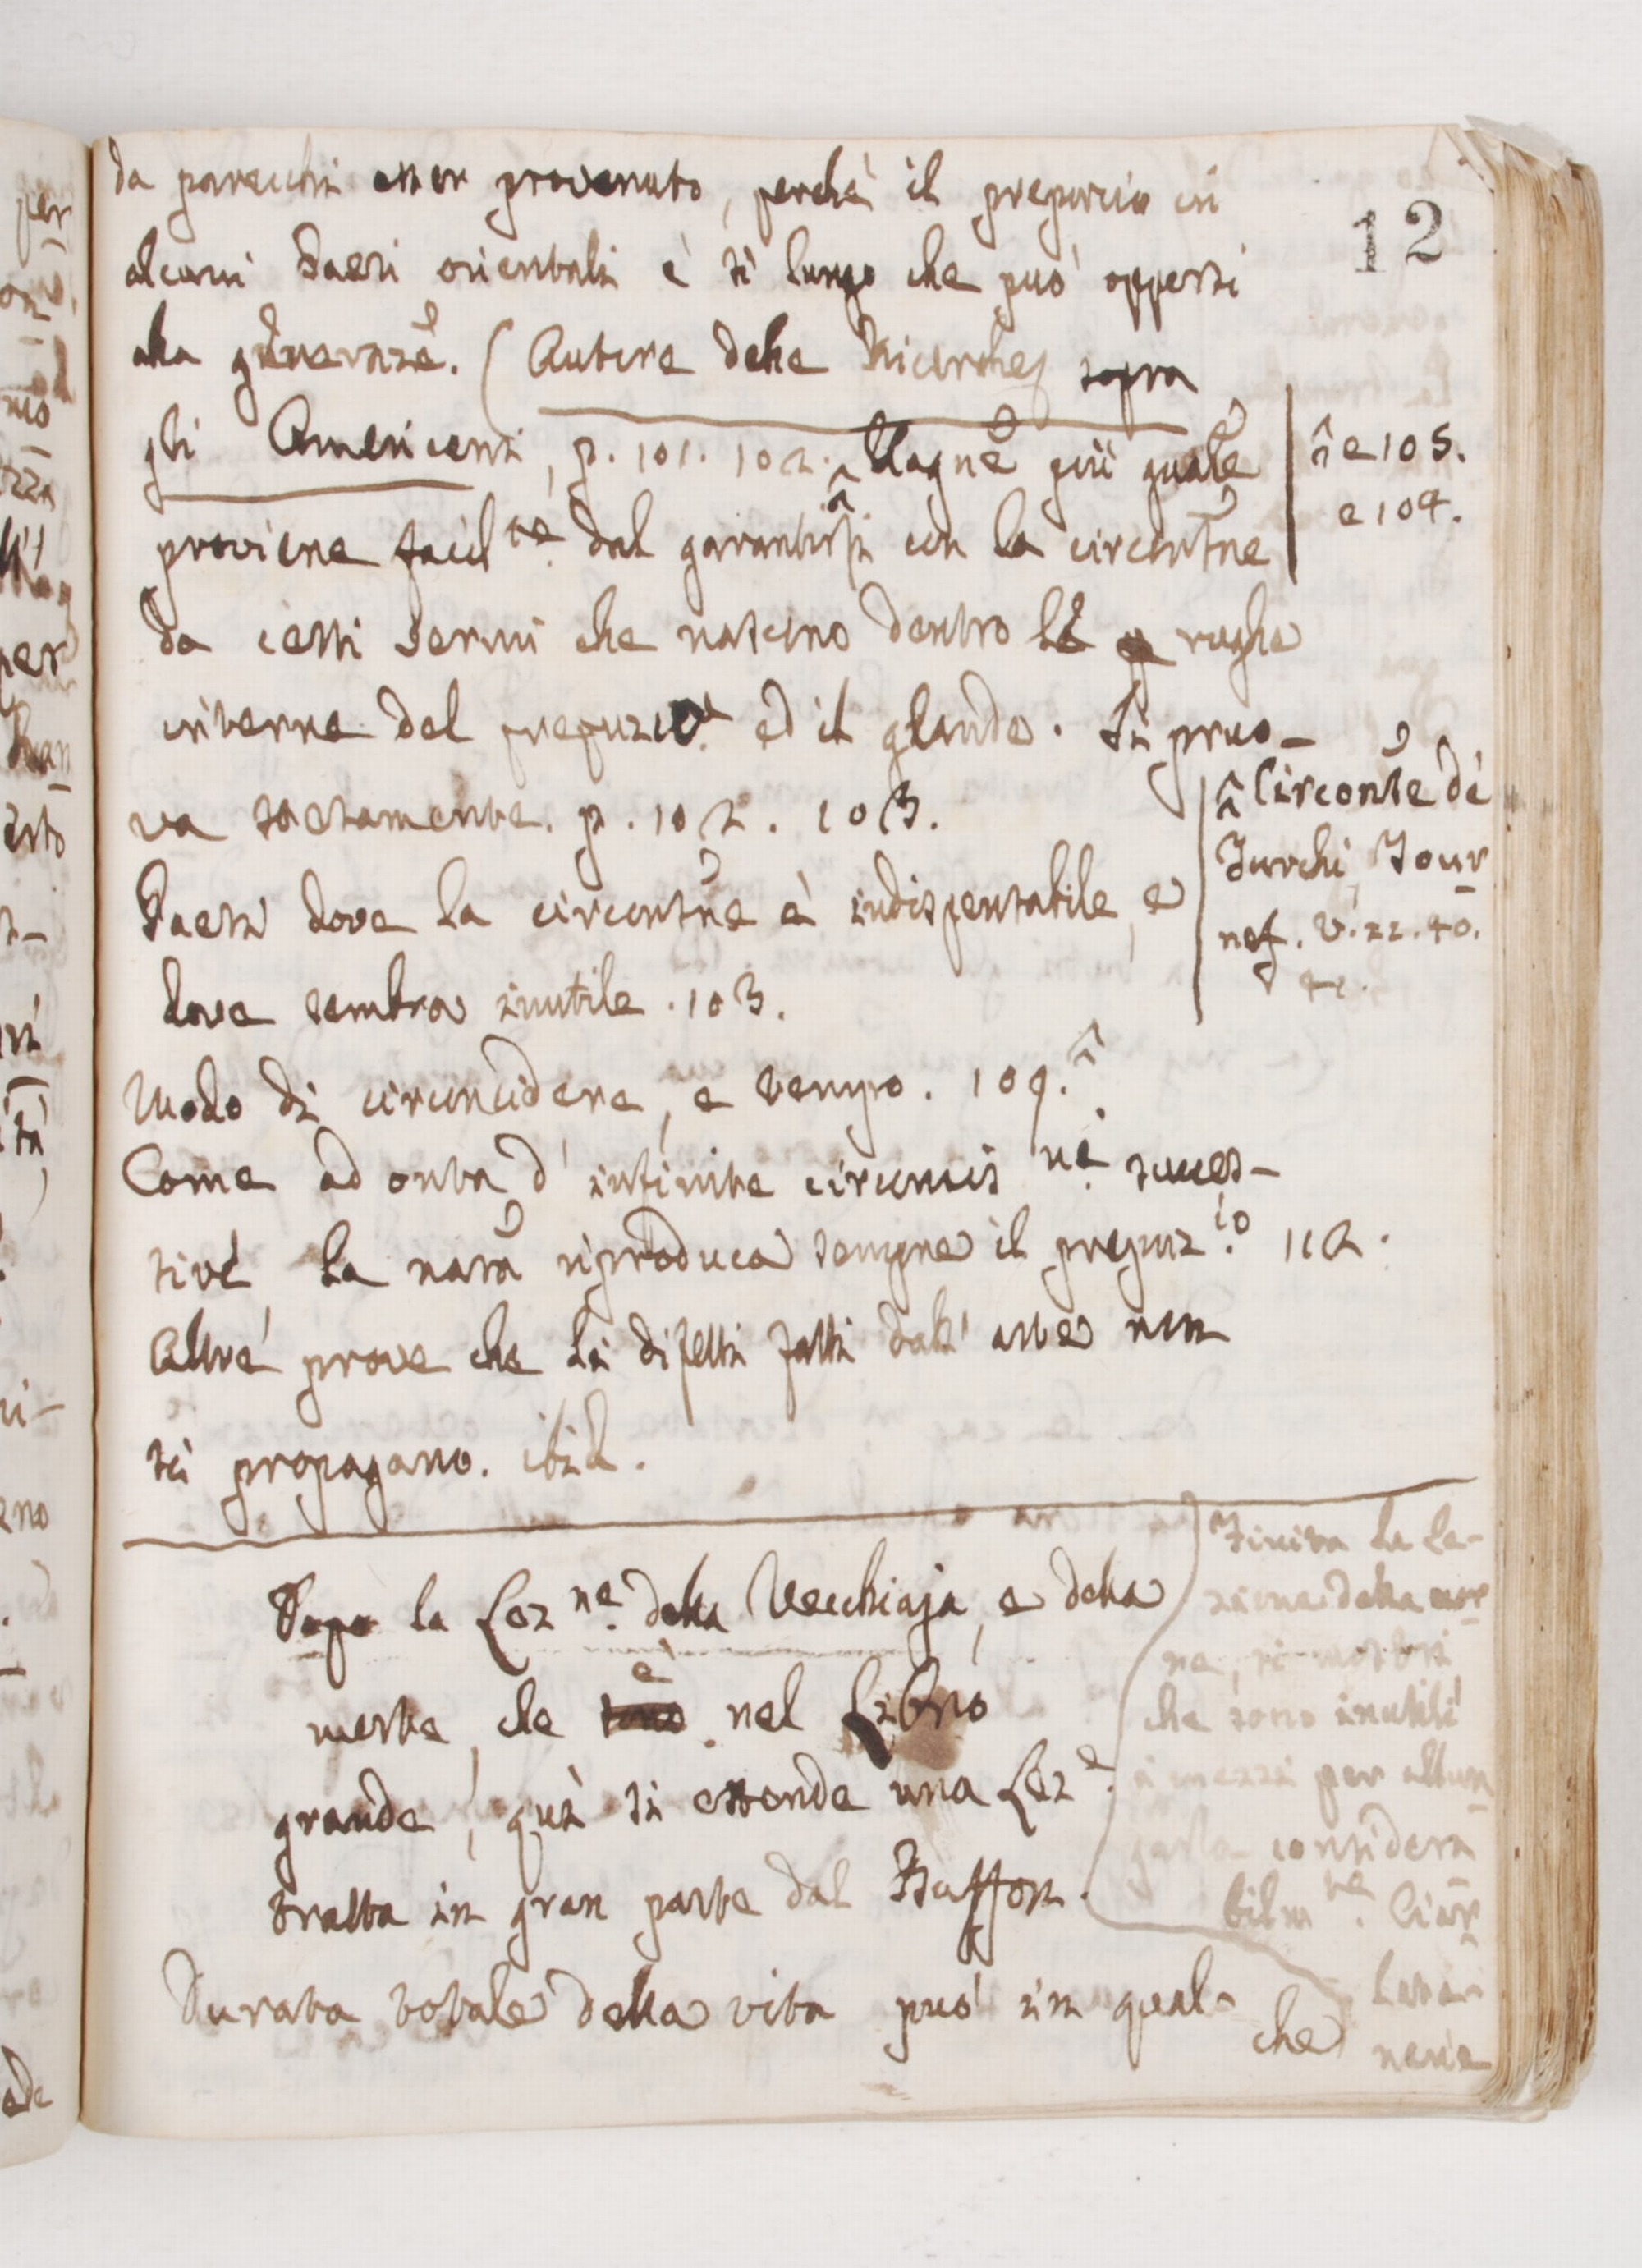 12
da parecchi esser provenuto, perchè il prepuzio in
alcuni Paesi orientali è sì lungo che può opporsi
alla generazē. (Autore delle Ricerche sopra
gli Americani, p. 101. 102. ^ Ragnē più quale
proviene facil.te dal garantirsi con la circonsne
da certi vermi che nascino dentro le rughe
interne del prepuzio ed il glande. Si pruo-
va sodamente. p. 102. 103.
Paesi dove la circonsne è indispensabile, e
dove sembra inutile. 103.
Modo di circoncidere, e tempo. 109.^
Come ad onta d'infinite circoncis.ne succes-
sive la narā riproduca sempre il prepuz.io 112.
Altre prove che li difetti fatti dall'arte non
si propagano. ibid.
^ e 105.
e 109.
^ Circonsē de
Turchi, Tour
nef. V. 22. 40.
41.
Dopo la Lez.ne della Vecchiaja, e della
morte, che è nel Libro
grande, quì si estende una Lez.e
tratta in gran parte dal Buffon.
Finita la le-
zione della mor
te, si mostri
che sono inutili
i mezzi per allun
garla considera
bilm.te. Ciar
lata-
nerie
Durata totale della vita può in qual-
che